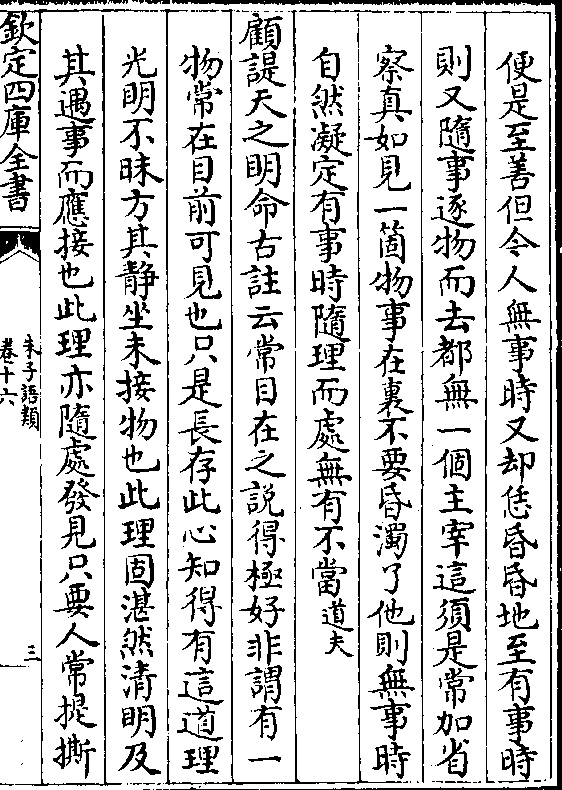 便是至善但今人無事時又却恁昏昏地至有事時
則又隨事逐物而去都無一個主宰這須是常加省
察真如見一箇物事在裏不要昏濁了他則無事時
自然凝定有事時隨理而處無有不當道夫
顧諟天之明命古註云常目在之說得極好非謂有一
物常在目前可見也只是長存此心知得有這道理
光明不昧方其靜坐未接物也此理固湛然清明及
其遇事而應接也此理亦隨處發見只要人常提撕
欽定四庫全書
朱子語類
卷十六
三